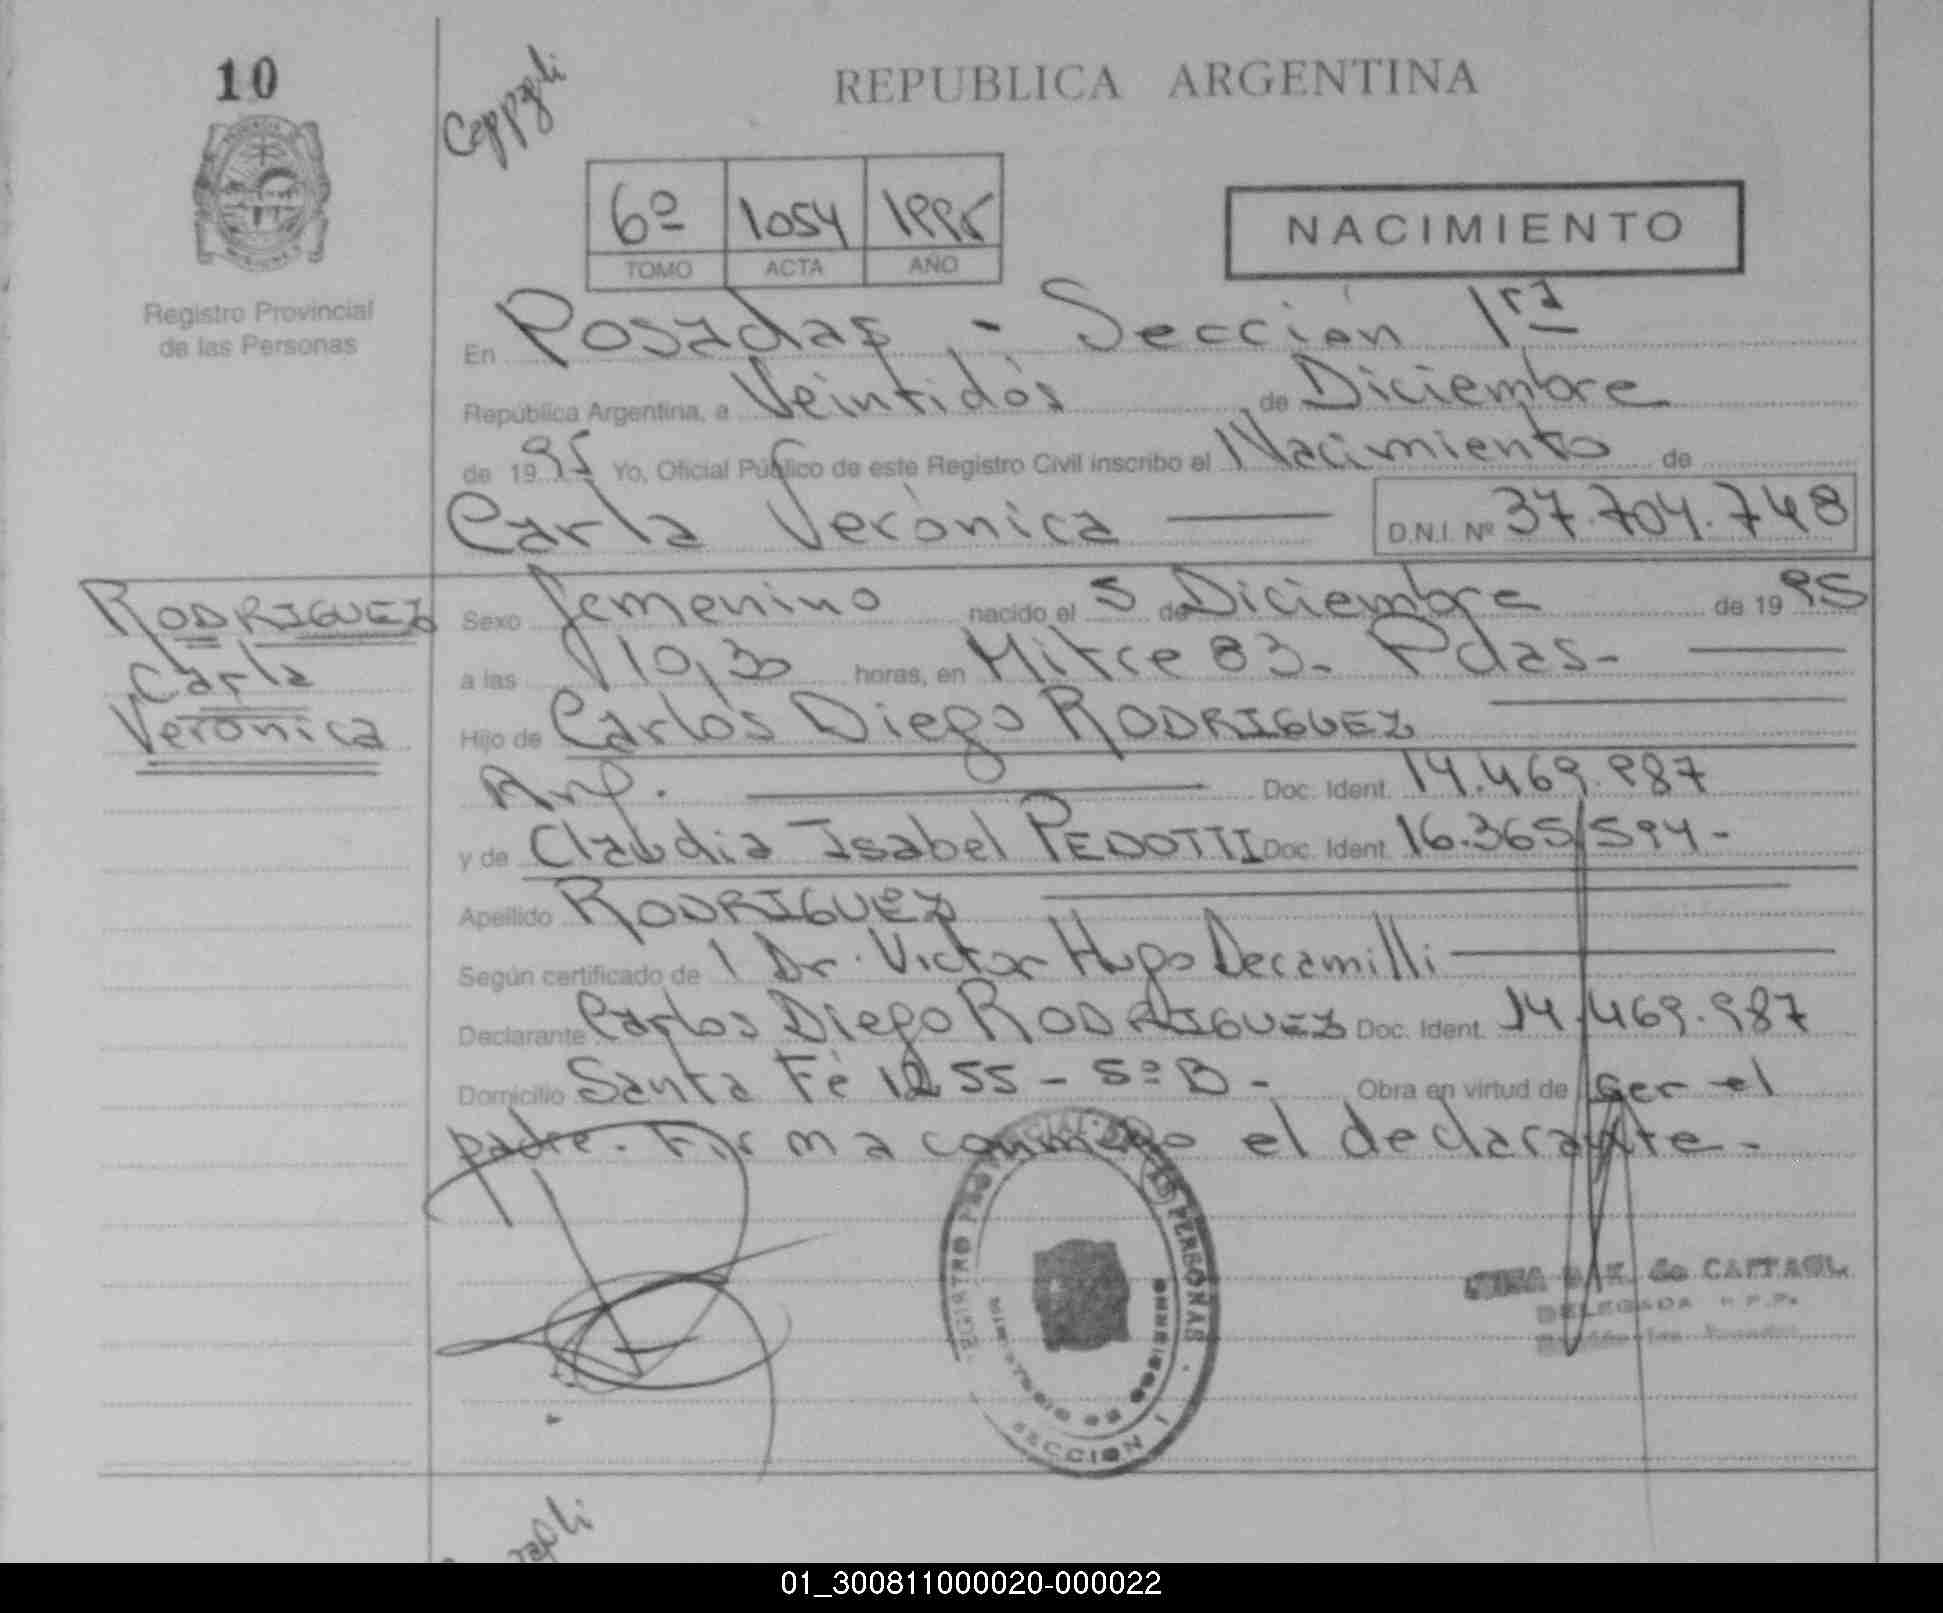 10
REPUBLICA ARGENTINA
6º 1054 1995
TOMO ACTA AÑO
NACIMIENTO
Registro Provincial
de las Personas
En Posadas - Sección 1ra
República Argentina, a Veintidós de Diciembre
de 1995 Yo, Oficial Público de este Registro Civil inscribo el Nacimiento de
Carla Verónica D.N.I. Nº 37.704.748
RODRIGUEZ
Carla
Verónica
Sexo femenino nacido el 5 de Diciembre de 1995
a las 10,30 horas, en Mitre 83- Pdas-
Hijo de Carlos Diego RODRIGUEZ
Arg. Doc. Ident. 14.469.987
y de Claudia Isabel PEDOTTI Doc. Ident. 16.365.594-
Apellido RODRIGUEZ
Según certificado de Dr. Victor Hugo Decamilli
Declarante Carlos Diego RODRIGUEZ Doc. Ident. 14.469.987
Domicilio Santa Fé 1255 - 5º B - Obra en virtud de ser el
padre. Firma conmigo el declarante-
REGISTRO PROVINCIAL DE LAS PERSONAS
MINISTERIO DE GOBIERNO
SECCION 1
DELEGADA
01_300811000020-000022